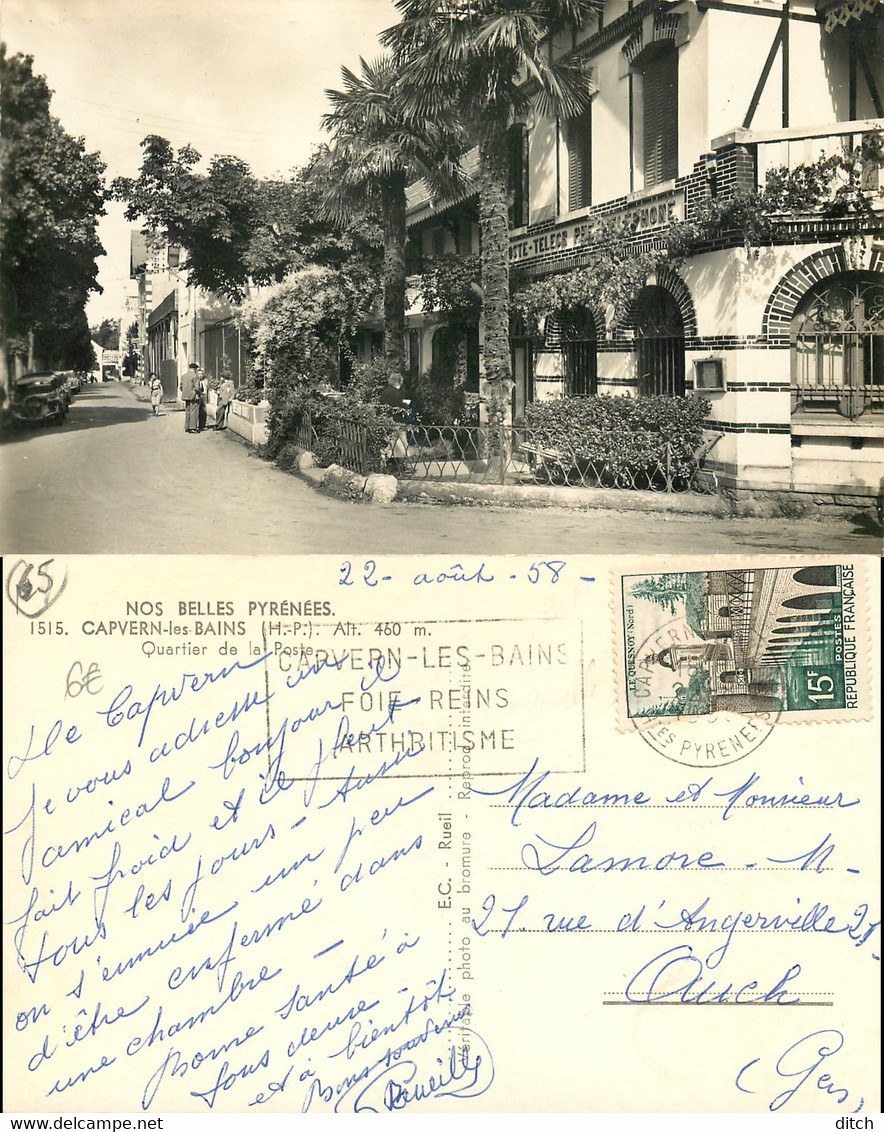 POSTE-TELEGRAPHE-TELEPHONE
65
22 - août - 58 -
NOS BELLES PYRÉNÉES.
1515. CAPVERN-les-BAINS (H.-P.). Alt. 460 m.
Quartier de la Poste
6€
CAPVERN-LES-BAINS
FOIE-REINS
ARTHRITISME
CAPVERN
HTES PYRENEES
LE QUESNOY (Nord)
15F
POSTES
RÉPUBLIQUE FRANÇAISE
De Capvern
Je vous adresse un
amical bonjour il
fait froid et il pleut
tous les jours - Aussi
on s'ennuie un peu
d'être enfermé dans
une chambre -
Bonne Santé à
tous deux -
et à bientôt
Bons souvenirs
E.C. - Rueil
Véritable photo au bromure - Reprod. interdite
Madame et Monsieur
Lamore - M -
21. rue d'Angerville 21.
Auch
(Gers)
ditch